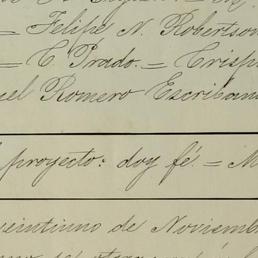 = Felipe N. Robertson
= C. Prado. = Crisp
el Romero Escriban
proyecto: doy fé. = M
veintiuno de Noviemb